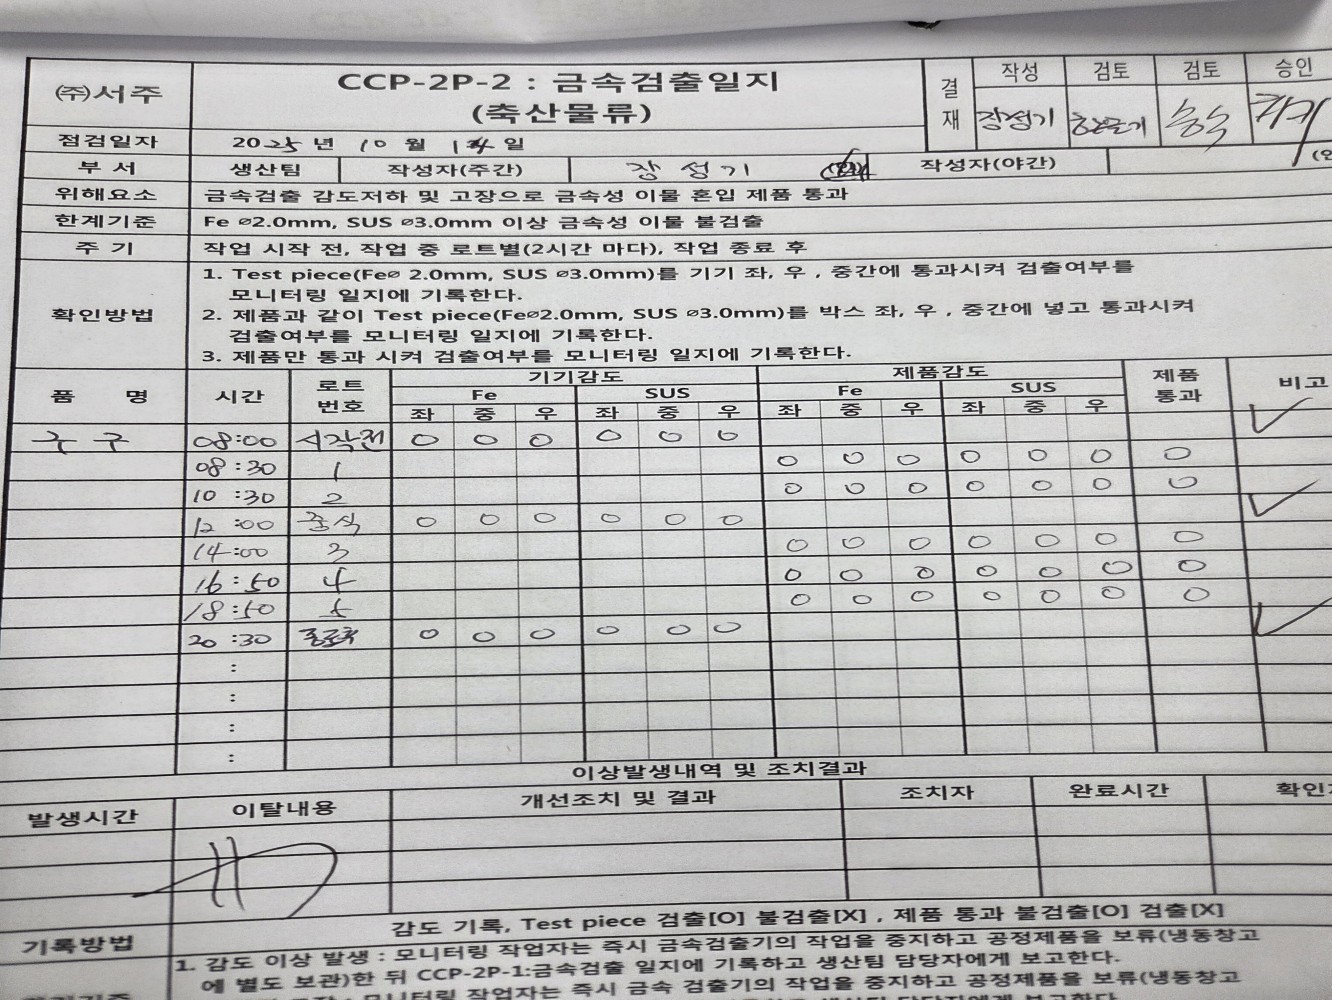 ㈜서주
CCP-2P-2 : 금속검출일지
(축산물류)
결재
작성 검토 검토 승인
장성기
점검일자 2025년 10월 14일
부 서 생산팀 작성자(주간) 장성기 작성자(야간)
위해요소 금속검출 감도저하 및 고장으로 금속성 이물 혼입 제품 통과
한계기준 Fe ⌀2.0mm, SUS ⌀3.0mm 이상 금속성 이물 불검출
주 기 작업 시작 전, 작업 중 로트별(2시간 마다), 작업 종료 후
확인방법
1. Test piece(Fe⌀ 2.0mm, SUS ⌀3.0mm)를 기기 좌, 우 , 중간에 통과시켜 검출여부를
모니터링 일지에 기록한다.
2. 제품과 같이 Test piece(Fe⌀2.0mm, SUS ⌀3.0mm)를 박스 좌, 우 , 중간에 넣고 통과시켜
검출여부를 모니터링 일지에 기록한다.
3. 제품만 통과 시켜 검출여부를 모니터링 일지에 기록한다.
품 명 시간 로트번호 기기감도 제품감도 제품통과 비고
Fe SUS Fe SUS
좌 중 우 좌 중 우 좌 중 우 좌 중 우
08:00 시작전 O O O O O O ✓
08:30 1 O O O O O O O
10:30 2 O O O O O O O
12:00 중식 O O O O O O ✓
14:00 3 O O O O O O O
16:50 4 O O O O O O O
18:50 5 O O O O O O O
20:30 종료후 O O O O O O ✓
:
:
:
:
이상발생내역 및 조치결과
발생시간 이탈내용 개선조치 및 결과 조치자 완료시간 확인
기록방법 감도 기록, Test piece 검출[O] 불검출[X] , 제품 통과 불검출[O] 검출[X]
1. 감도 이상 발생 : 모니터링 작업자는 즉시 금속검출기의 작업을 중지하고 공정제품을 보류(냉동창고
에 별도 보관)한 뒤 CCP-2P-1:금속검출 일지에 기록하고 생산팀 담당자에게 보고한다.
모니터링 작업자는 즉시 금속 검출기의 작업을 중지하고 공정제품을 보류(냉동창고